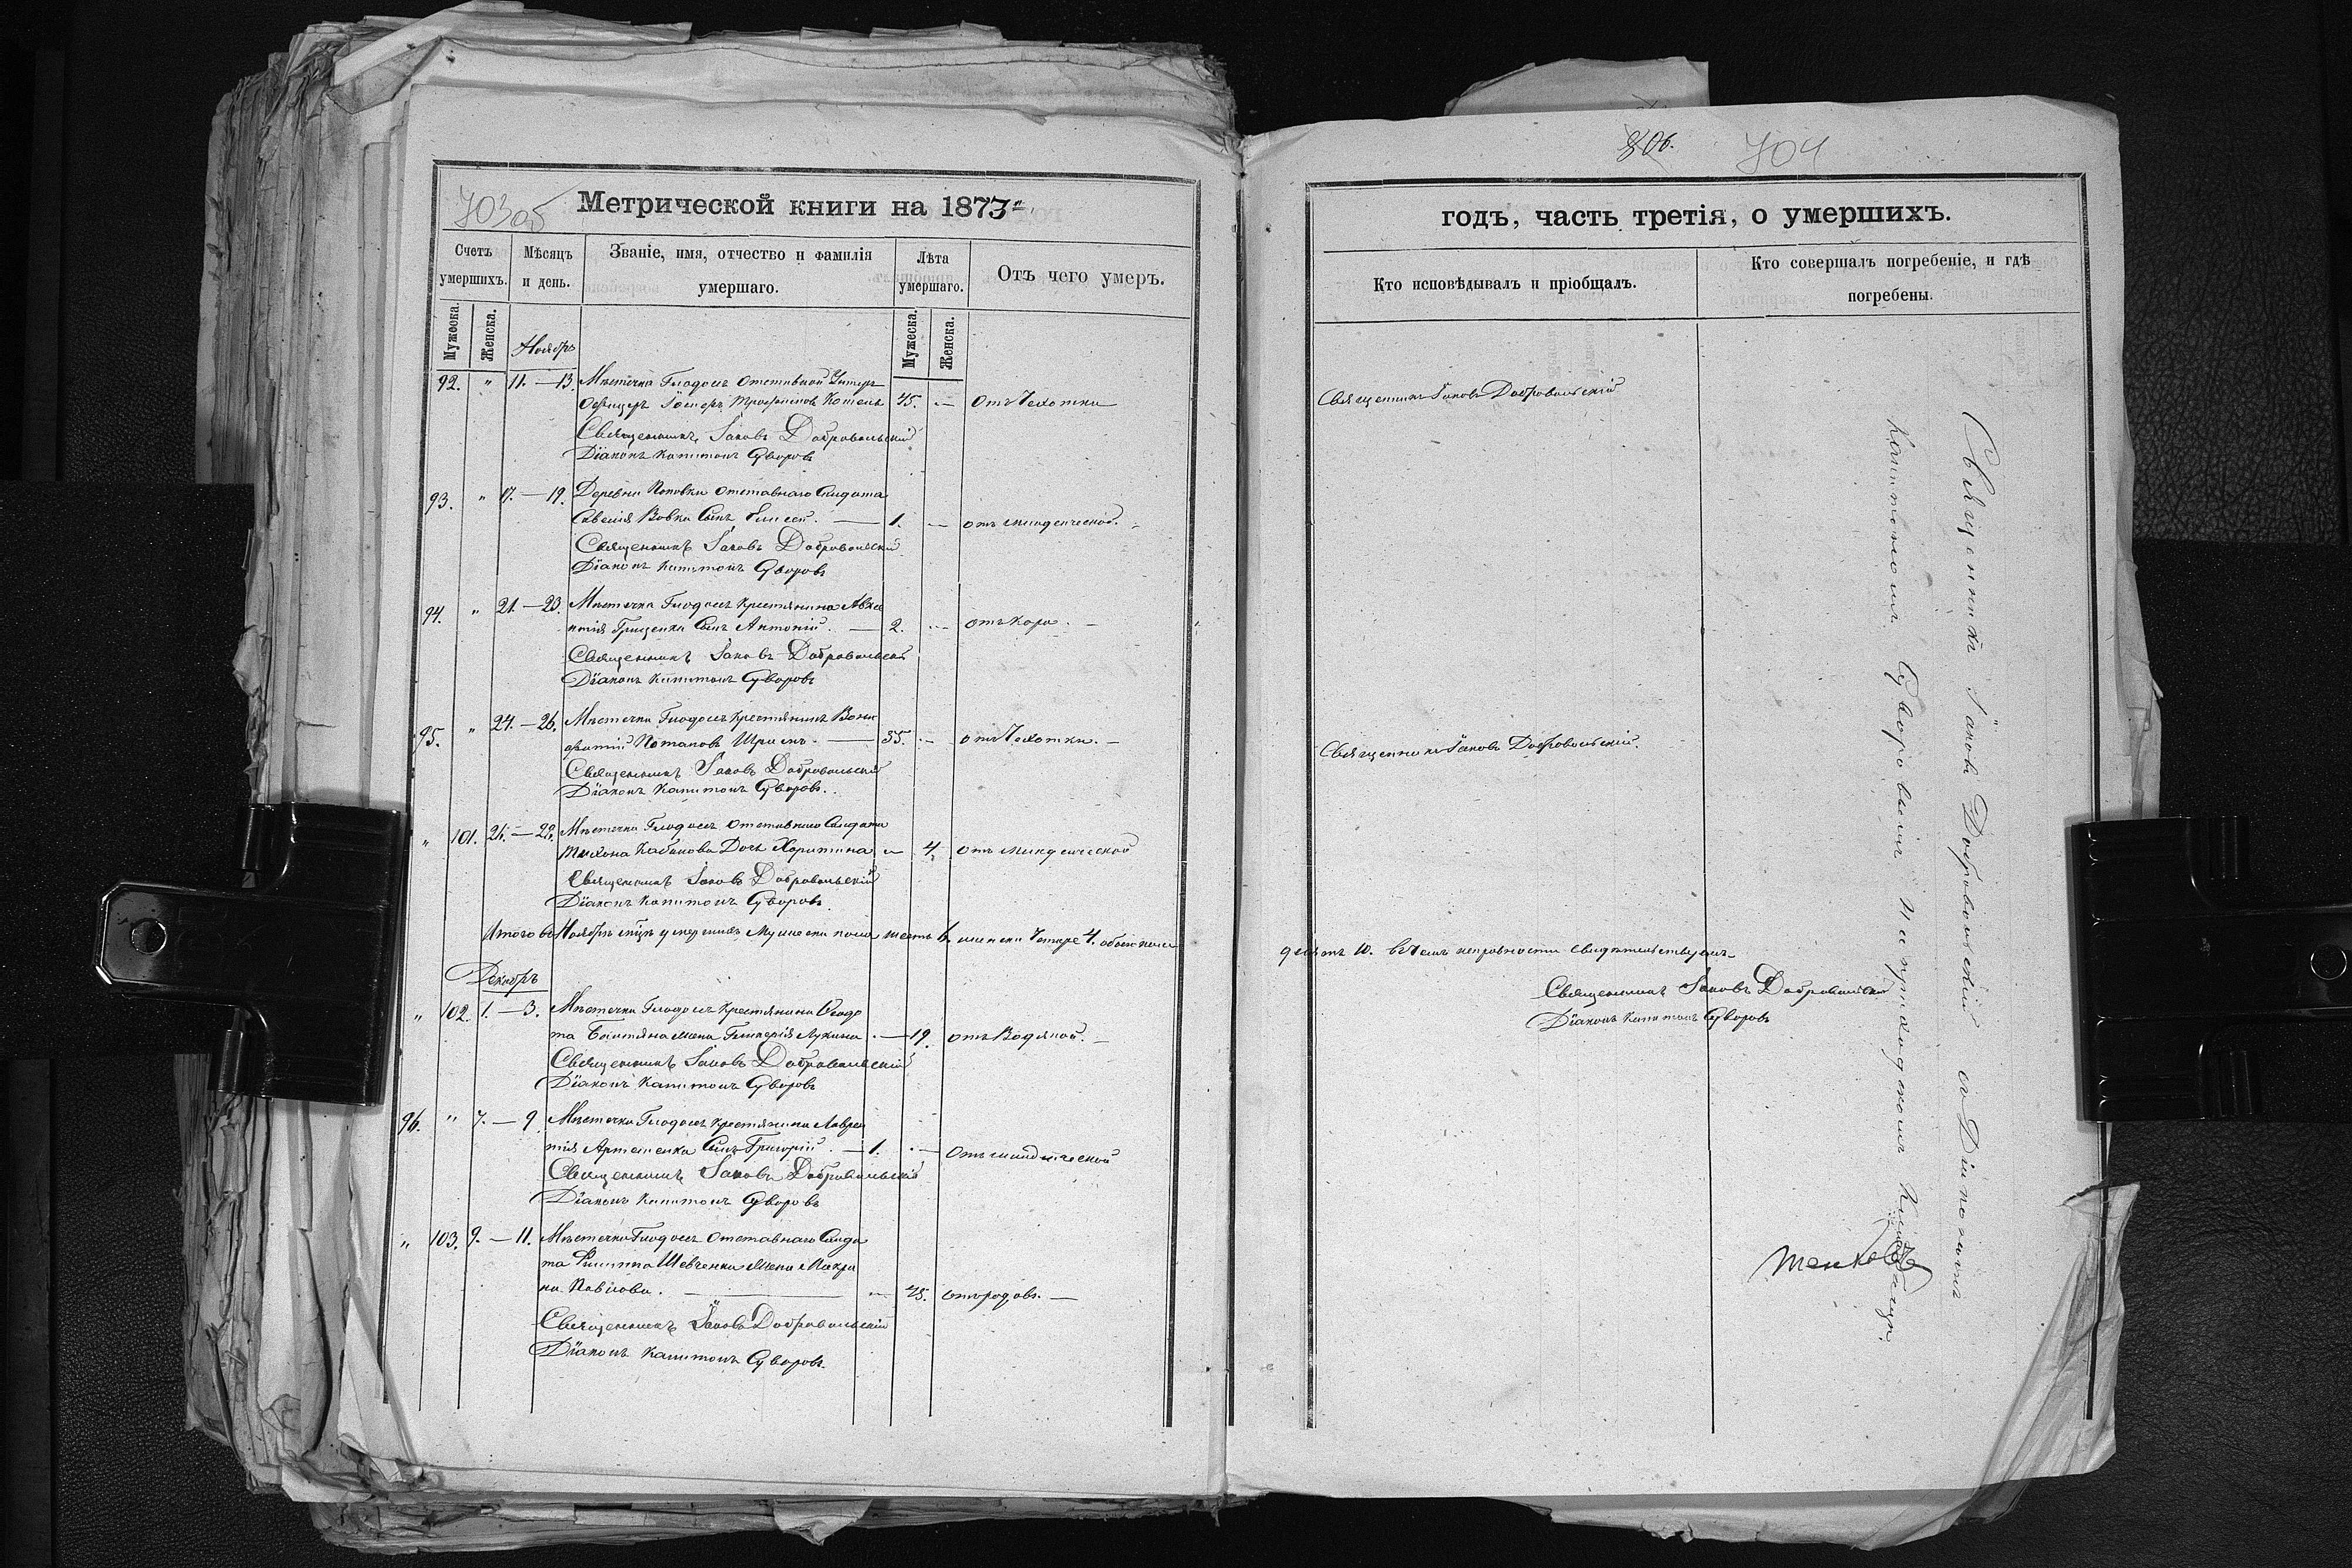 703об
Метрической книги на 1873
Счетъ умершихъ.
Мѣсяцъ и день.
Званіе, имя, отчество и фамилія умершаго.
Лѣта умершаго.
Отъ чего умеръ.
Мужеска.
Женска.
Ноябрь
Мужеска.
Женска.
92. " 11. — 13. Мѣстечка Глодосъ отставной Унтеръ
Офицеръ Іосифъ Трофимовъ 45. — Отъ Чахотки
Священникъ Іаковъ Добровольскій
Діаконъ Капитонъ Суворовъ
93. " 17. — 19. Деревни Поповки отставнаго Солдата
Савелія Вовка Сынъ Елисей. — 1. — отъ младенческой.
Священникъ Іаковъ Добровольскій
Діаконъ Капитонъ Суворовъ
94. " 21. — 23. Мѣстечка Глодосъ крестянина Авксе
нтія Грищенка Сынъ Антоній. — 2. — отъ Кора.
Священникъ Іаковъ Добровольскій
Діаконъ Капитонъ Суворовъ
95. " 24. — 26. Мѣстечка Глодосъ крестянинъ Вони
фатій Потаповъ — 35. — отъ Чахотки. —
Священникъ Іаковъ Добровольскій
Діаконъ Капитонъ Суворовъ.
" 101. 26. — 28. Мѣстечка Глодосъ отставнаго Солдата
Тихона Кабанова Дочь Харитина — 4. отъ младенческой
Священникъ Іаковъ Добровольскій
Діаконъ Капитонъ Суворовъ
Итого въ Ноябрѣ м̃цѣ умершихъ Мужеска пола шесть 6. женска Четыре 4. обоего пола
Декабрь
" 102. 1. — 3. Мѣстечка Глодосъ крестянина Ѳеодо
та жена Гликерія Лукина. — 19. отъ Водяной. —
Священникъ Іаковъ Добровольскій
Діаконъ Капитонъ Суворовъ
96. " 7. — 9. Мѣстечка Глодосъ крестянина Лавре
нтія Артеменка Сынъ Григорій. — 1. — Отъ младенческой
Священникъ Іаковъ Добровольскій
Діаконъ Капитонъ Суворовъ
" 103. 9. — 11. Мѣстечка Глодосъ отставнаго Солда
та Филиппа Шевченка жена Макри
на Павлова. — 45. отъ родовъ. —
Священникъ Іаковъ Добровольскій
Діаконъ Капитонъ Суворовъ.
806.
704
годъ, часть третія, о умершихъ.
Кто исповѣдывалъ и пріобщалъ.
Кто совершалъ погребеніе, и гдѣ погребены.
Священникъ Іаковъ Добровольскій
Священникъ Іаковъ Добровольскій.
десять 10. въ чемъ исправности свидѣтельствуемъ
Священникъ Іаковъ Добровольскій
Діаконъ Капитонъ Суворовъ
Священникъ Іаковъ Добровольскій съ Діакономъ
Капитономъ Суворовымъ на приходскомъ Кладбищѣ.